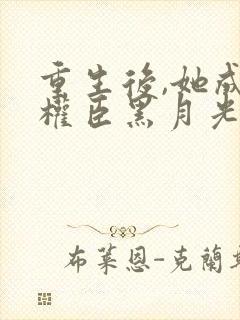 重生後,她成
權臣黑月光
布萊恩-克蘭